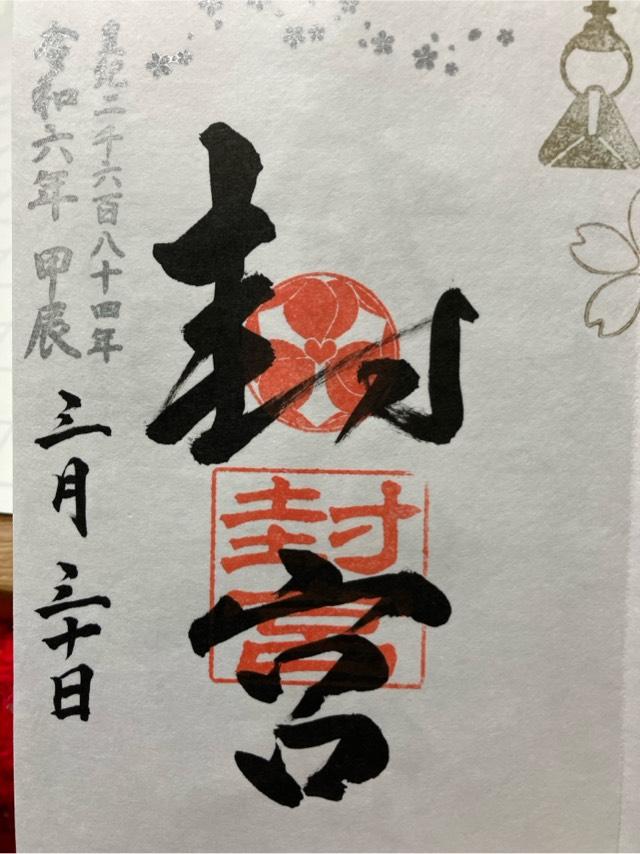 封宮
封宮
皇紀二千六百八十四年
令和六年 甲辰
三月三十日